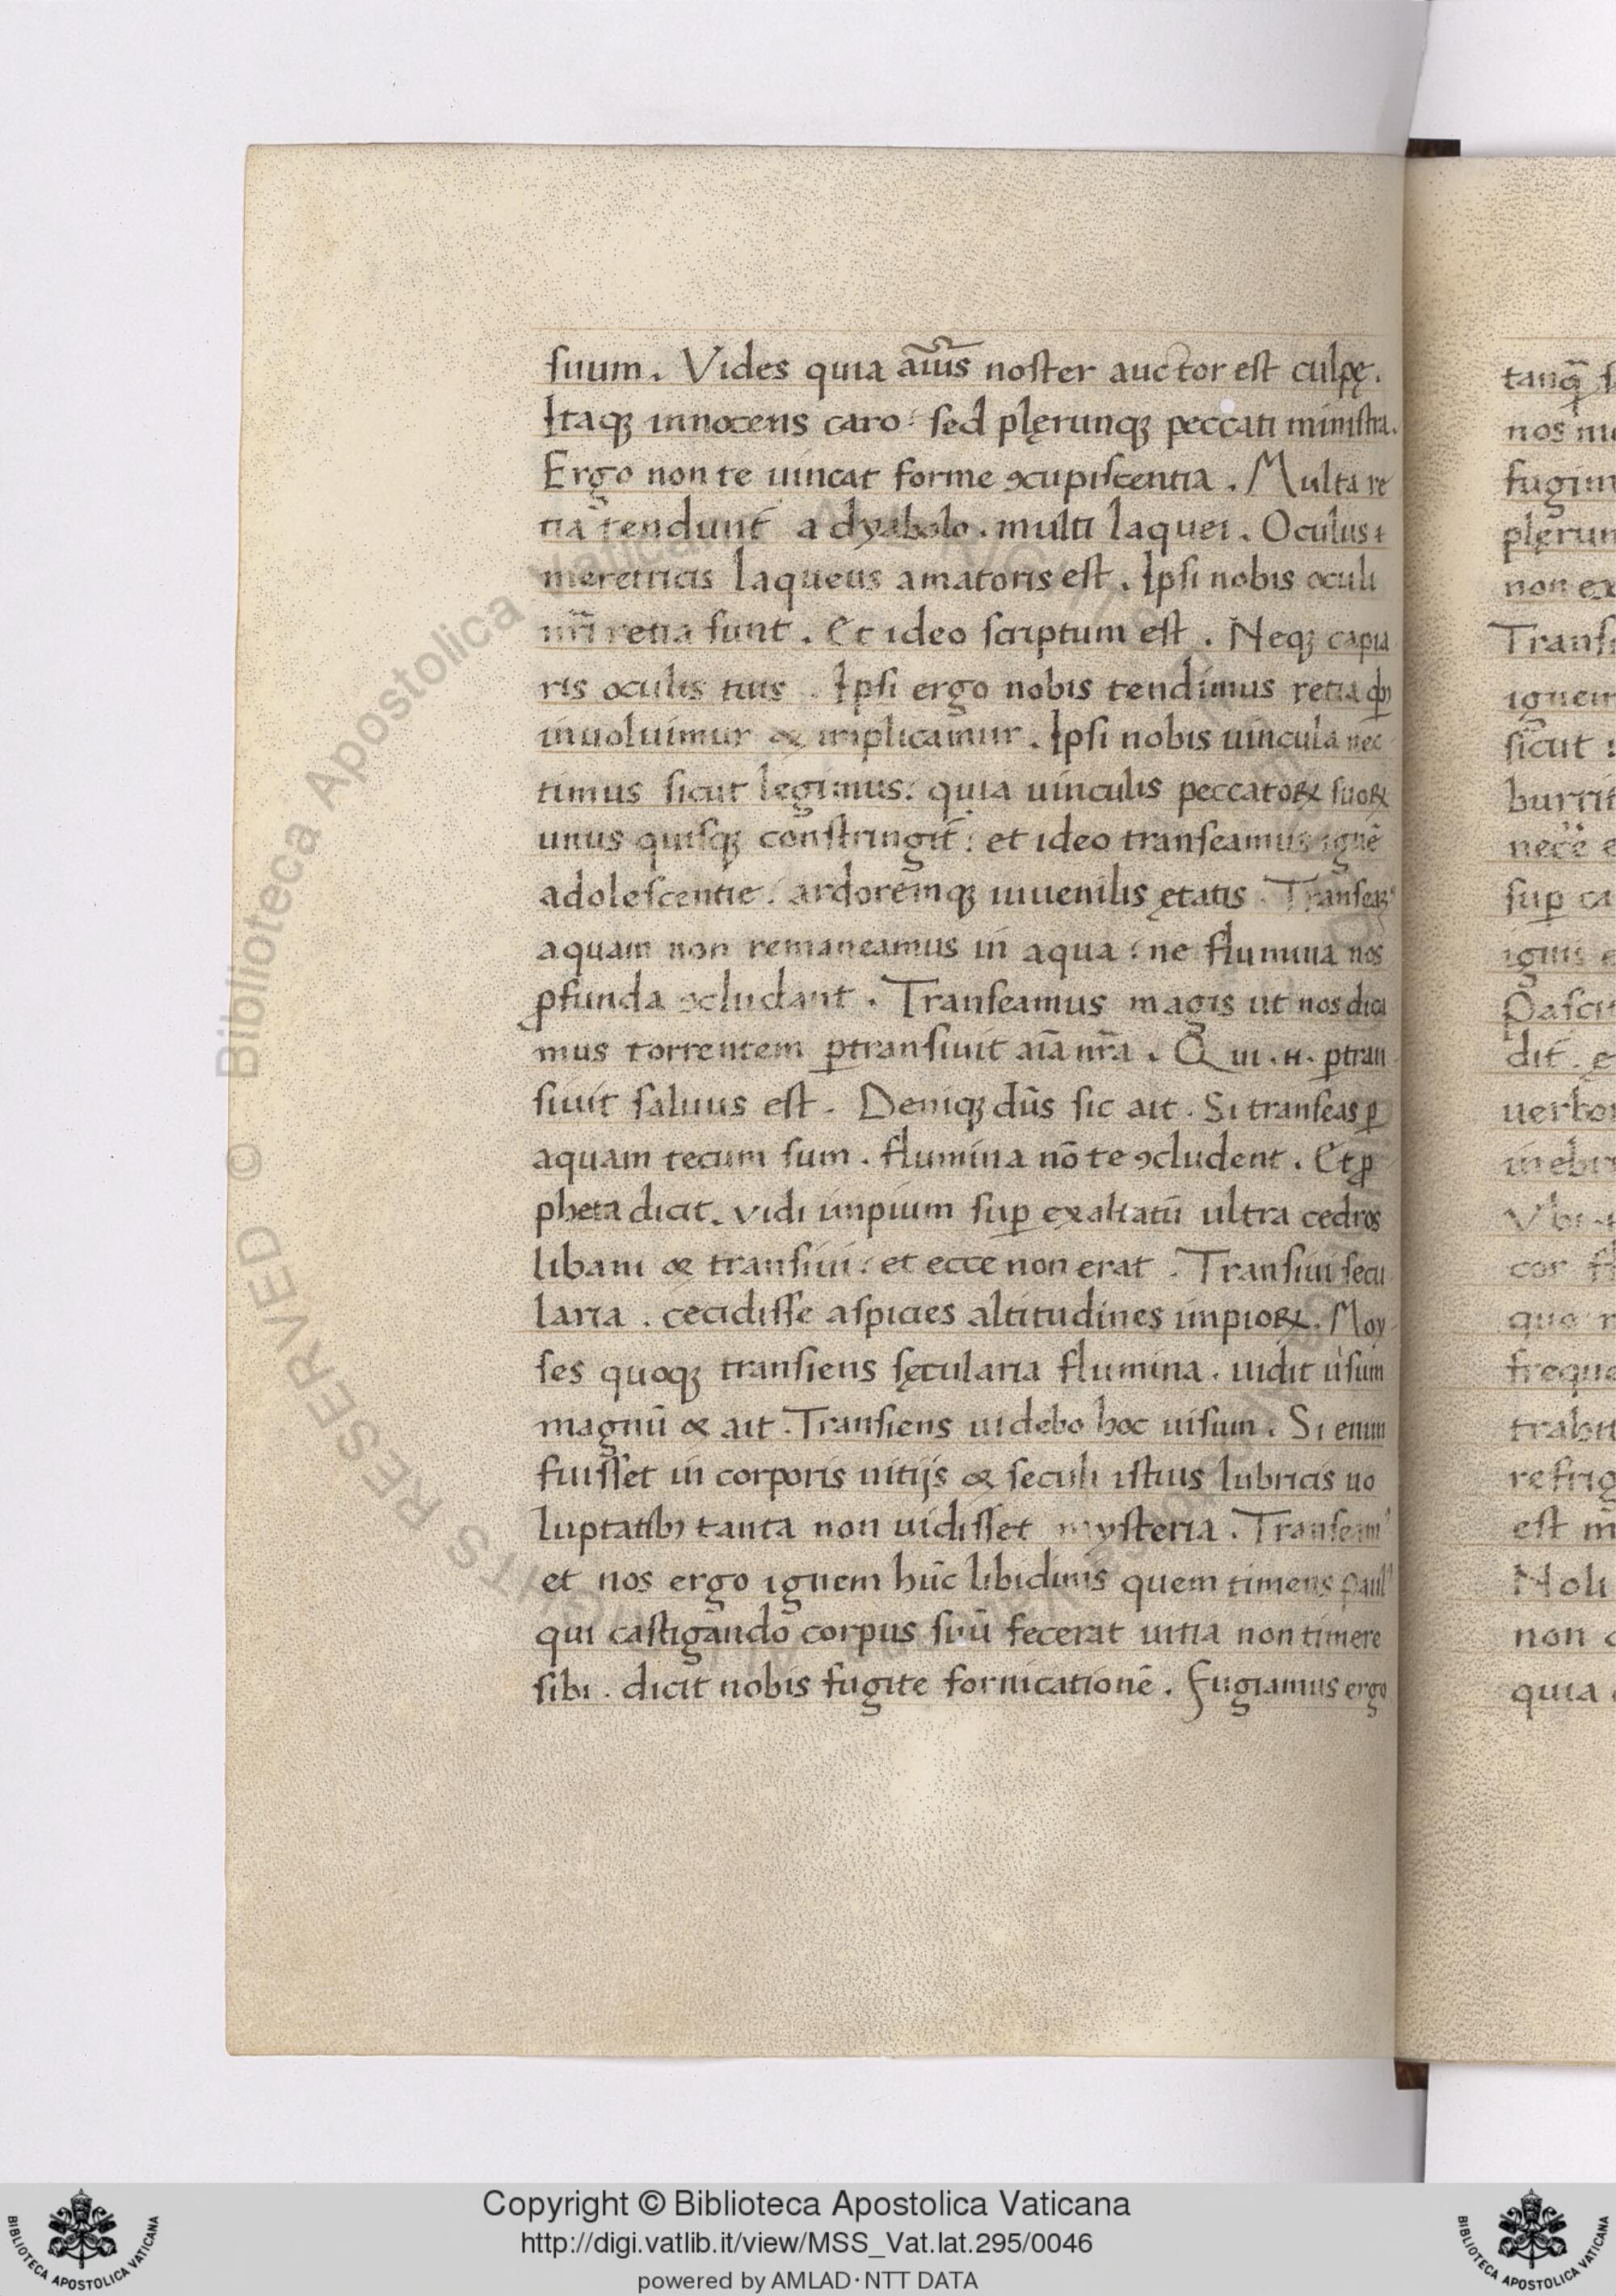 suum. Vides quia aīus noster auctor est culpę.
Itaqꝫ innocens caro: sed plęrunqꝫ peccati ministra.
Ergo non te uincat forme ꝯcupiscentia. Multa re
tia tendunt̄ a dyabolo. multi laquei. Oculus
meretricis laqueus amatoris est. Ipsi nobis oculi
nr̄i retia sunt. Et ideo scriptum est. Neqꝫ capia
ris oculis tuis. Ipsi ergo nobis tendimus retia
inuoluimur & implicamur. Ipsi nobis uincula nec
timus sicut legimus: quia uinculis peccatoꝝ suoꝝ
unus quisqꝫ constringit̄: et ideo transeamus ignē
adolescentie: ardoremqꝫ iuuenilis ętatis. Transeaꝫꝰ
aquam non remaneamus in aqua: ne flumina nos
ꝓfunda ꝯcludant. Transeamus magis ut nos dica
mus torrentem ꝑtransiuit aīa nr̄a. Qui .n. ꝑtran
siuit saluus est. Deniqꝫ dn̄s sic ait. Si transeas ꝑ
aquam tecum sum. flumina nō te ꝯcludent. Et ꝓ
pheta dicit. vidi impium suꝑ exaltatū ultra cedros
libani & transiui: et ecce non erat. Transiui secu
laria. cecidisse aspicies altitudines impioꝝ. Moy
ses quoqꝫ transiens sęcularia flumina. uidit uisum
magnū & ait. Transiens uidebo hoc uisum. Si enim
fuisset in corporis uitijs & seculi istius lubricis uo
luptatibꝫ tanta non uidisset mysteria. Transeamꝰ
et nos ergo ignem hūc libidinis quem timens Paulꝰ
qui castigando corpus suū fecerat uitia non timere
sibi. dicit nobis fugite fornicationē. Fugiamus ergo
tanq̄
nos
fugim
plęrun
non ex
Trans
ignem
sicut
burit
suꝑ ca
ignis e
Pasci
dit. e
uerbo
inebr
cor
quo
freque
refrig
est
Noli
non
quia
Biblioteca Apostolica Vaticana
ALL RIGHTS RESERVED ©
Copyright © Biblioteca Apostolica Vaticana
http://digi.vatlib.it/view/MSS_Vat.lat.295/0046
powered by AMLAD·NTT DATA
BIBLIOTECA APOSTOLICA VATICANA
BIBLIOTECA APOSTOLICA VATICANA